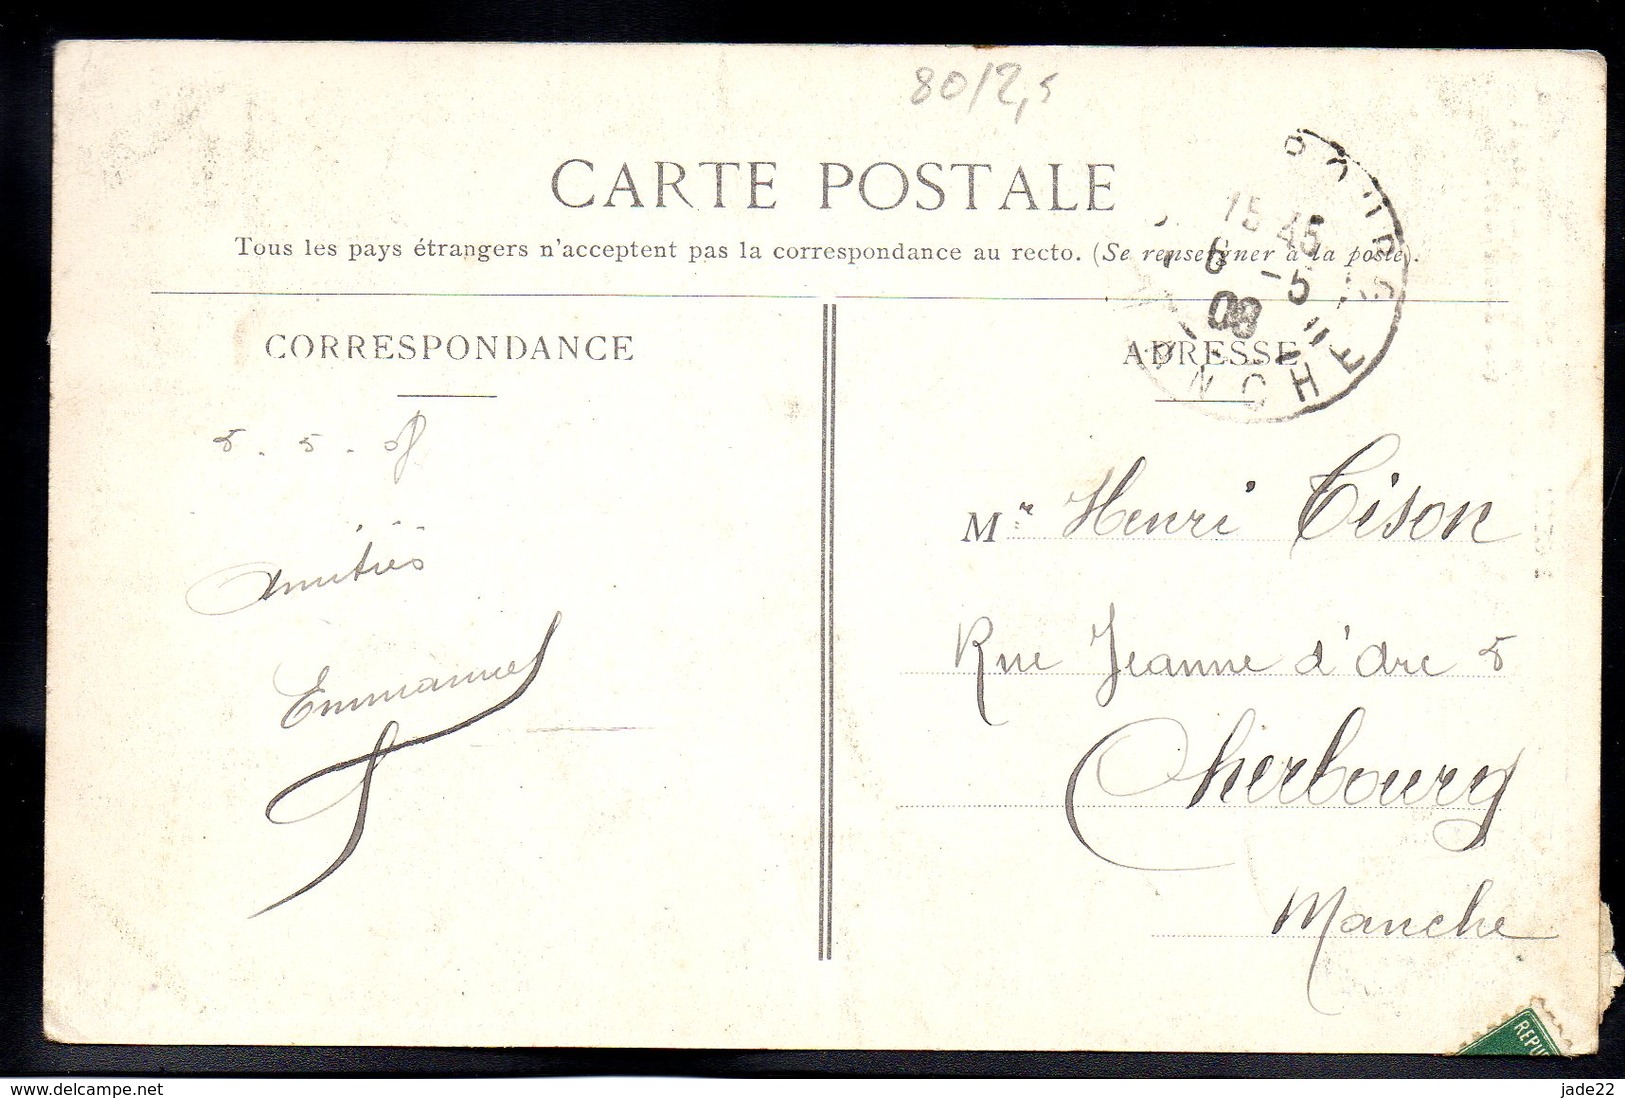 80/2,5
CARTE POSTALE
Tous les pays étrangers n'acceptent pas la correspondance au recto. (Se renseigner à la poste).
CORRESPONDANCE
ADRESSE
15 45
6 -5
08
MANCHE
5 . 5 . 08
Amitiés
Emmanuel
Mr Henri Tison
Rue Jeanne d'Arc 5
Cherbourg
Manche
REPU
www.delcampe.net
jade22